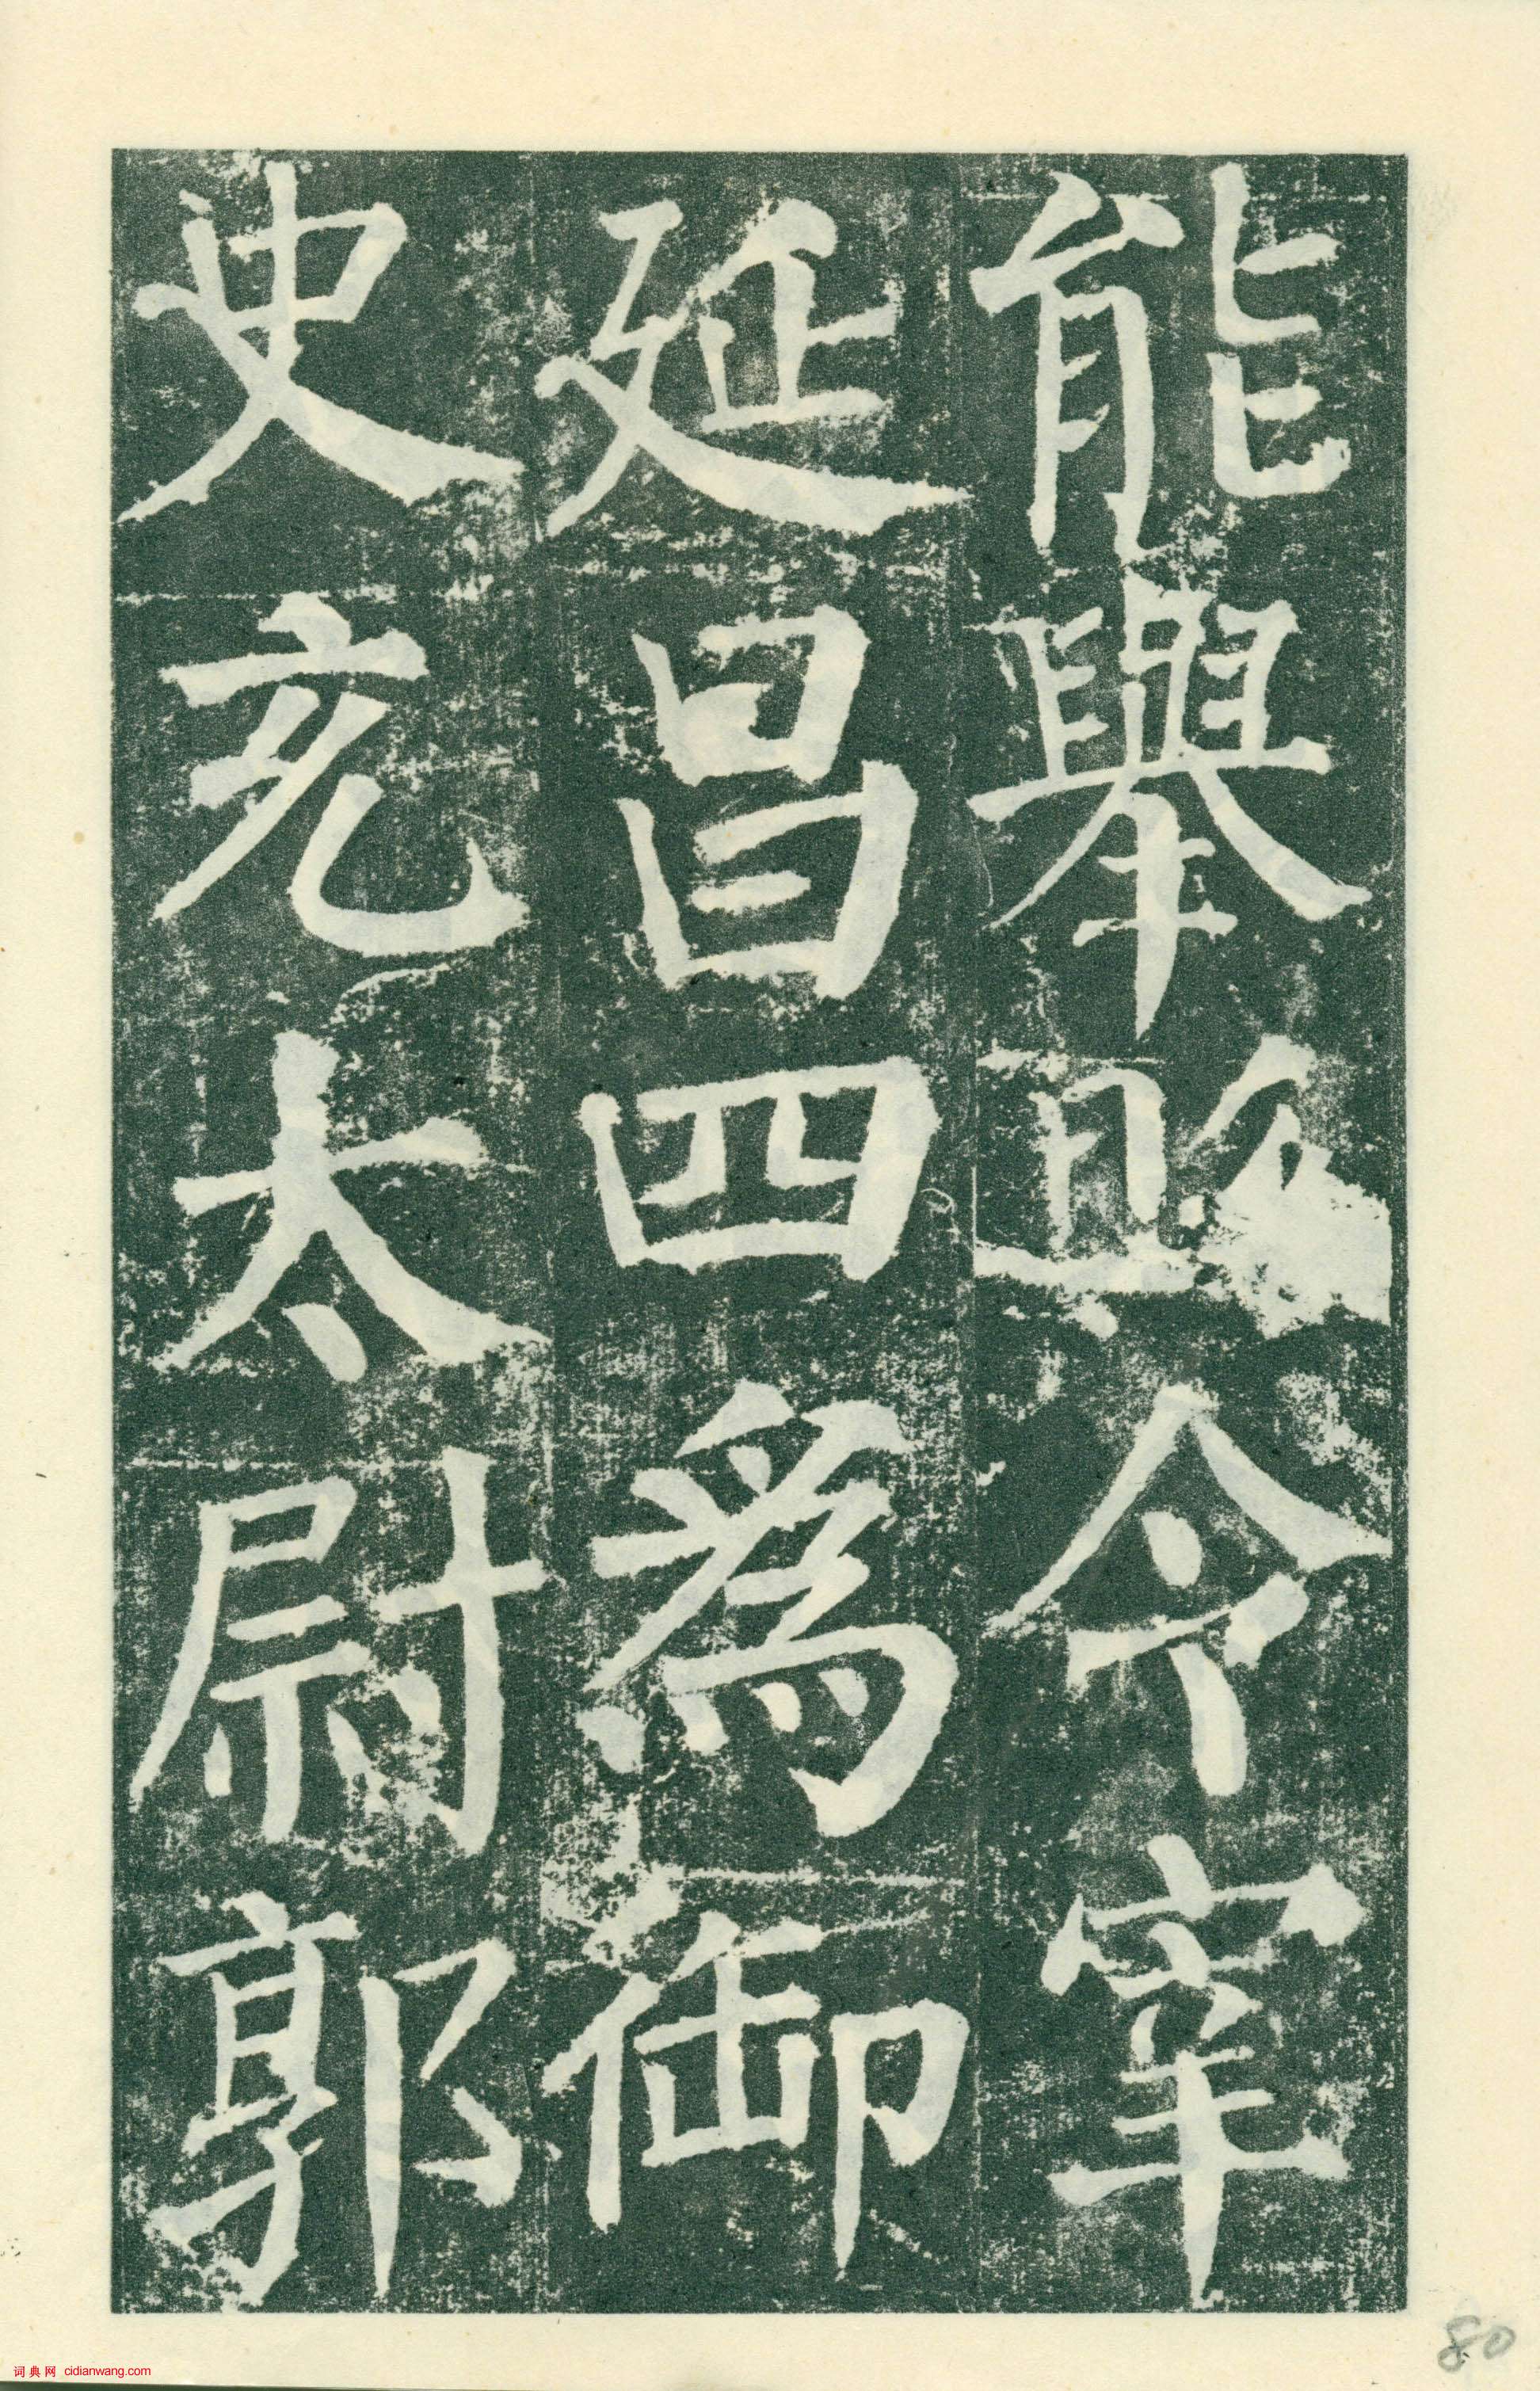 能舉今宰
延昌四為御
史充太尉郭
80
词典网 cidianwang.com